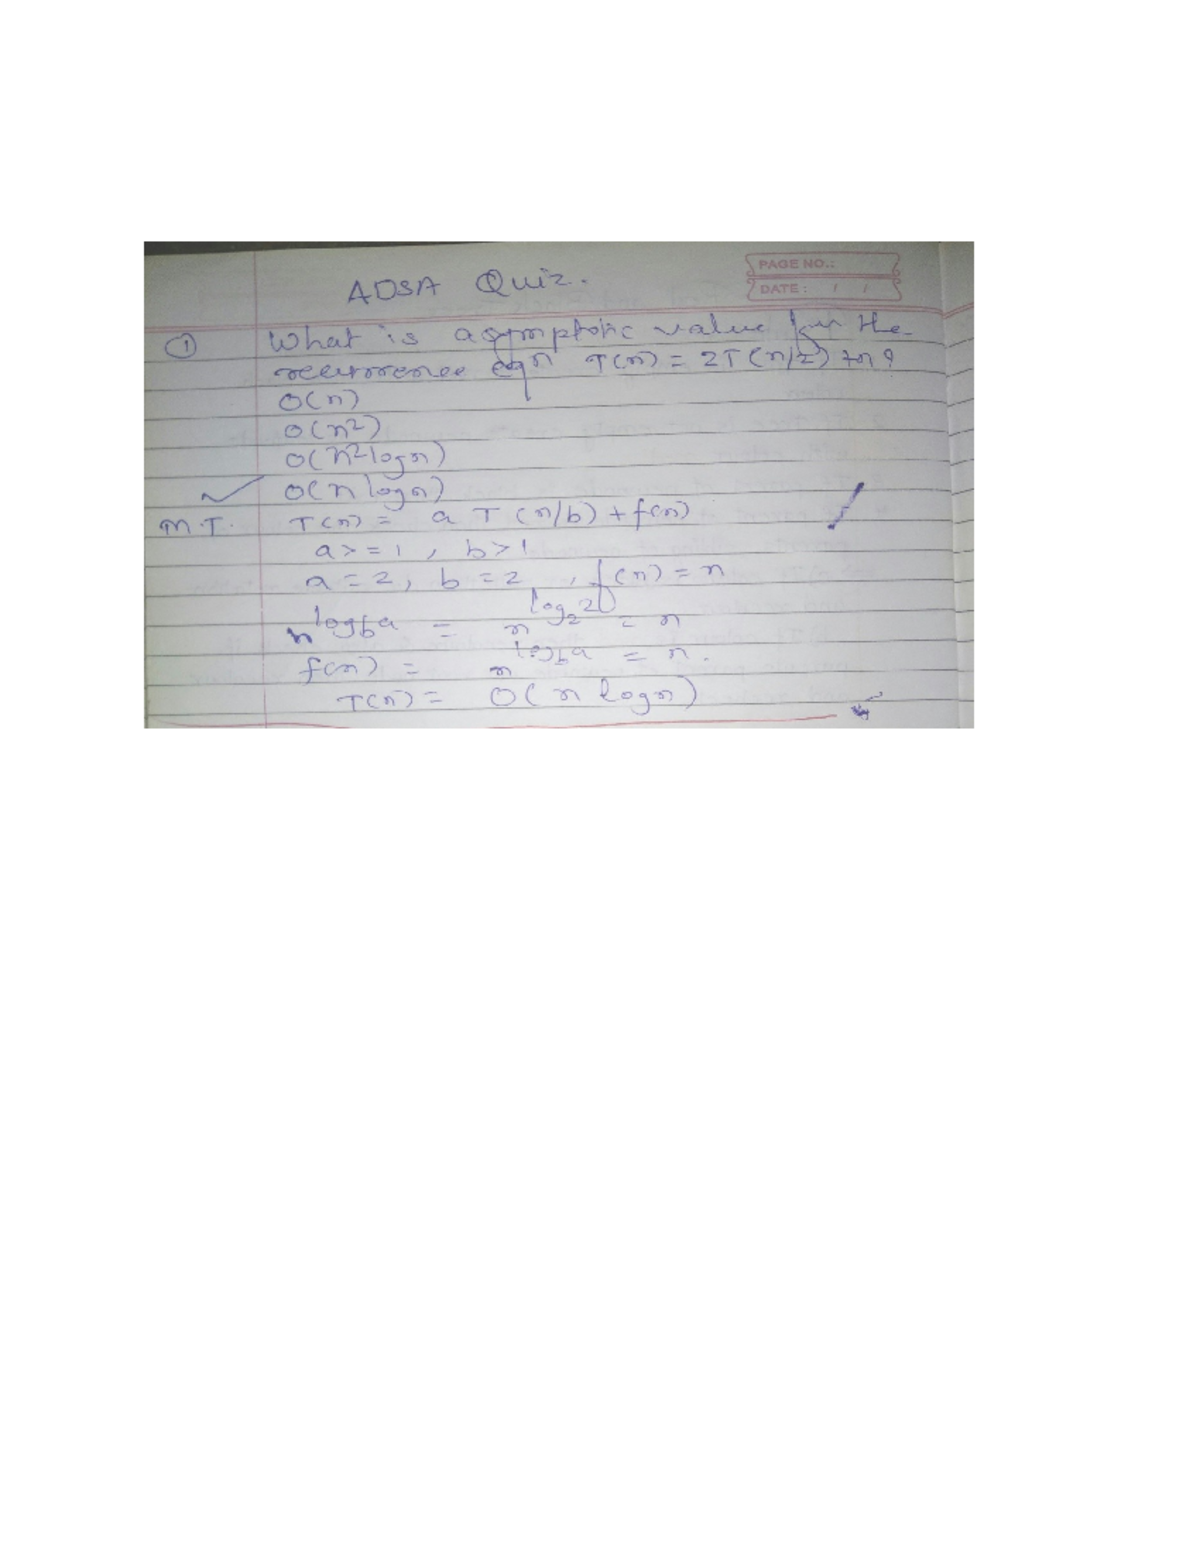 PAGE NO.:
DATE: / /
ADSA Quiz.
① What is asymptotic value for the
recurrence eqn T(n) = 2T(n/2) +n?
O(n)
O(n²)
O(n²logn)
✓ O(n logn)
M.T. T(n) = a T (n/b) + f(n)
a>=1, b>1
a=2, b=2, f(n)=n
n^log_b a = n^log_2 2 = n
f(n) = n^log_b a = n.
T(n) = O(n logn)